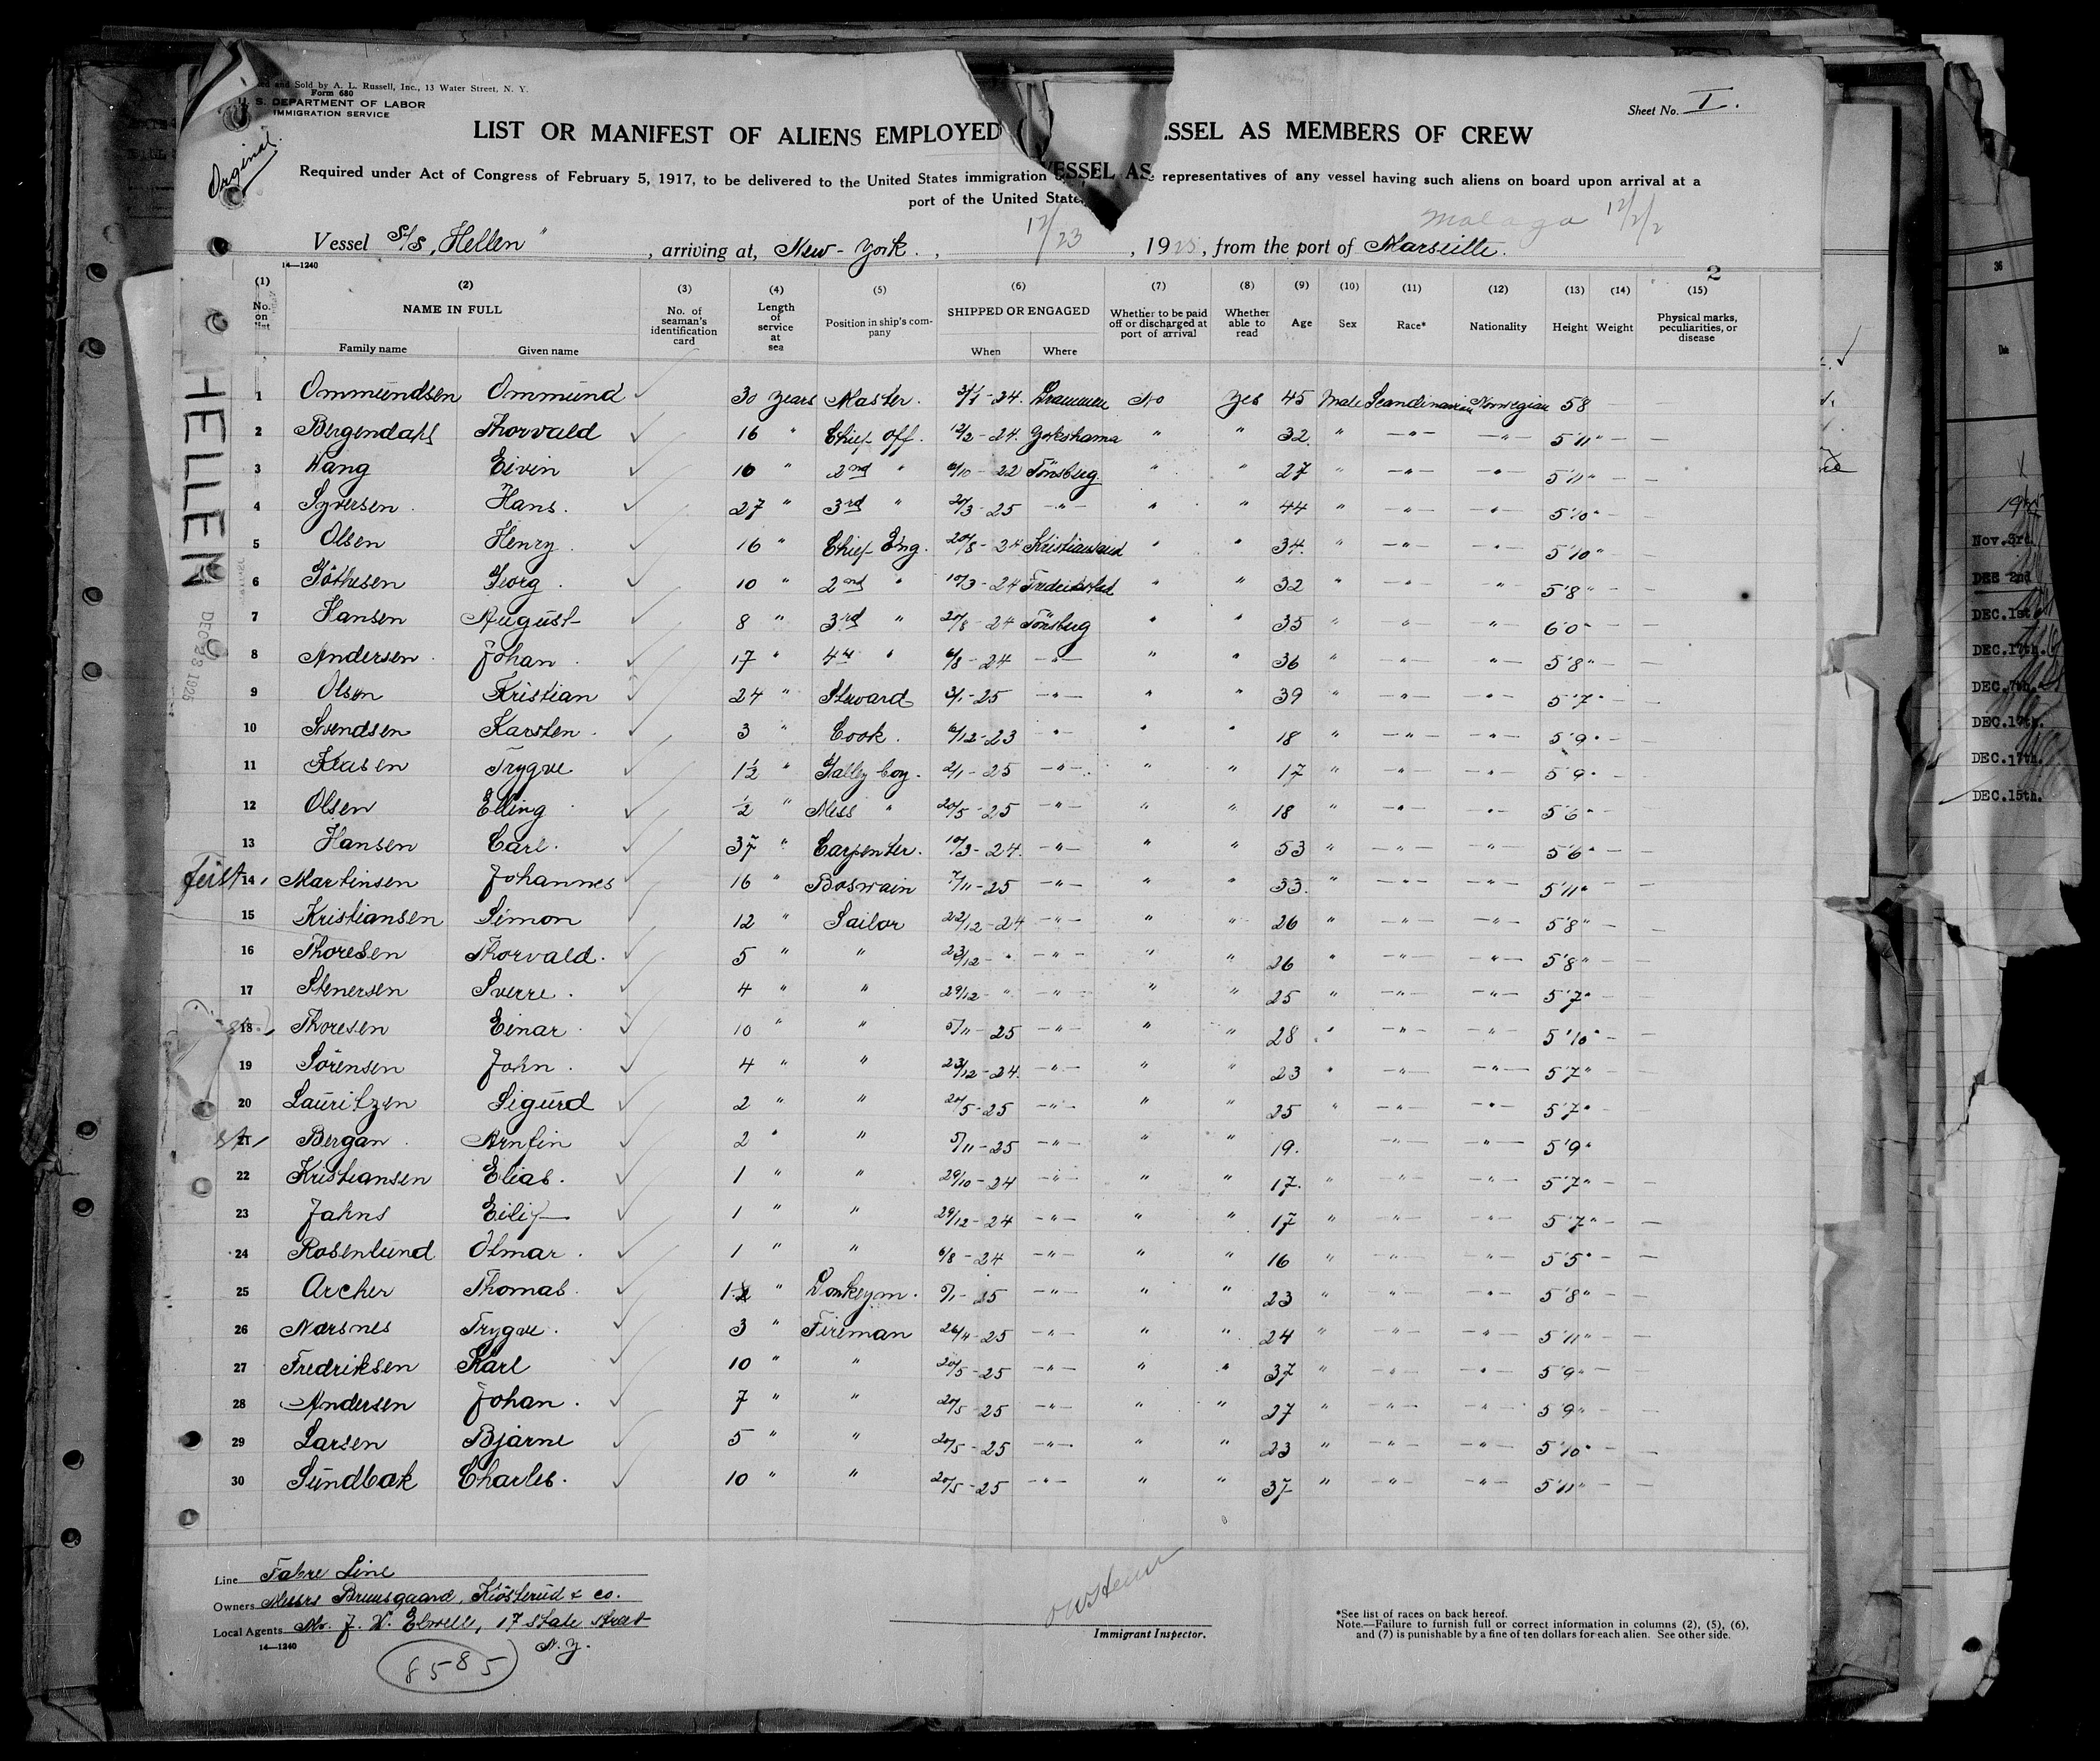 Sold by A. L. Russell, Inc., 13 Water Street, N. Y.
Form 680
S. DEPARTMENT OF LABOR
IMMIGRATION SERVICE
Orginal.
Sheet No. I.
LIST OR MANIFEST OF ALIENS EMPLOYED ESSEL AS MEMBERS OF CREW
VESSEL AS
Required under Act of Congress of February 5, 1917, to be delivered to the United States immigration representatives of any vessel having such aliens on board upon arrival at a
port of the United State
Malaga 12/2/2
12/23
Vessel S/S „Hellen", arriving at, New-York., , 1925, from the port of Marseille.
14—1240
2
(1) (2) (3) (4) (5) (6) (7) (8) (9) (10) (11) (12) (13) (14) (15)
No. on list NAME IN FULL Family name Given name No. of seaman's identification card Length of service at sea Position in ship's company SHIPPED OR ENGAGED When Where Whether to be paid off or discharged at port of arrival Whether able to read Age Sex Race* Nationality Height Weight Physical marks, peculiarities, or disease
HELLEN
DEC 23 1925
1 Ommundsen Ommund 30 years Master. 3/1-24. Drammen No Yes 45 Male Scandinavian Norwegian 5 8 —
2 Bergendahl Thorvald 16 " Chief off. 12/2-24. Yokohama " " 32 " —"— —"— 5'11" — —
3 Wang Eivin 10 " 2nd " 6/10-22 Tönsberg. " " 27 " —"— —"— 5'11" — —
4 Syversen. Hans. 27 " 3rd " 20/3-25 —"— " " 44 " —"— —"— 5'10" — —
5 Olsen Henry. 16 " Chief Eng. 20/8-24 Kristiansand " " 34. " —"— —"— 5'10" — —
6 Göthesen Georg. 10 " 2nd " 10/3-24 Fredrikstad " " 32 " —"— " — 5'8" — —
7 Hansen August 8 " 3rd " 20/8-24 Tönsberg " " 35 " —"— " — 6'0" — —
8 Andersen. Johan. 17 " 4th " 6/8-24 —"— " " 36 " —"— —"— 5'8" — —
9 Olsen Kristian 24 " Steward 3/1-25 —"— " " 39 " —"— —"— 5'7" — —
10 Svendsen Karsten. 3 " Cook. 6/12-23 —"— " " 18 " —"— —"— 5'9" — —
11 Trygve 1½ " Galley boy. 2/1-25 —"— " " 17 " —"— —"— 5'9" —
12 Olsen Elling ½ " Mess " 20/5-25 —"— " " 18 " —"— —"— 5'6" —
13 Hansen Carl. 37 " Carpenter. 10/3-24. —"— " " 53 " —"— —"— 5'6" — —
14 Martinsen Johannes 16 " Boswain 7/11-25 —"— " " 33. " —"— —"— 5'11" — —
15 Kristiansen Simon 12 " Sailor 22/12-24 —"— " " 26 " —"— —"— 5'8" — —
16 Thoresen Thorvald. 5 " " 23/12-" —"— " " 26 " —"— —"— 5'8" — —
17 Stenersen Sverre. 4 " " 29/12-" —"— " " 25 " —"— —"— 5'7" — —
18 Thoresen Einar. 10 " " 5/11-25 —"— " " 28 " —"— —"— 5'10" — —
19 Sörensen John. 4 " " 23/12-24. —"— " " 23 " —"— —"— 5'7" — —
20 Lauritzen Sigurd 2 " " 20/5-25 —"— " " 25 " —"— —"— 5'7" — —
21 Bergan. Arnfin 2 " " 5/11-25 —"— " " 19. —"— —"— 5'9"
22 Kristiansen Elias. 1 " " 29/10-24 —"— " " 17. " —"— —"— 5'7" — —
23 Jahns Eilif 1 " " 29/12-24 —"— " " 17 " —"— —"— 5'7" — —
24 Rosenlund Olmar. 1 " " 6/8-24 —"— " " 16 " —"— —"— 5'5" — —
25 Archer Thomas. " Donkeym. 5/1-25 —"— " " 23 " —"— —"— 5'8" — —
26 Narsnes Trygve. 3 " Fireman 26/11-25 —"— " " 24 " —"— —"— 5'11" — —
27 Fredriksen Karl 10 " " 20/5-25 —"— " " 37 " —"— —"— 5'9" —
28 Andersen Johan. 7 " " 20/5-25 —"— " " 27 " —"— —"— 5'9" — —
29 Larsen Bjarne 5 " " 20/5-25 —"— " " 23 " —"— —"— 5'10" — —
30 Sundbak Charles. 10 " " 20/5-25 —"— " " 37 " —"— —"— 5'11" — —
Line Fabre Line
Owners Messrs Bruusgaard, Kiösterud & co.
Local Agents Mr. J. W. Elwell, 17 State Street
N. Y.
14—1240
8585
Immigrant Inspector.
*See list of races on back hereof.
Note.—Failure to furnish full or correct information in columns (2), (5), (6),
and (7) is punishable by a fine of ten dollars for each alien. See other side.
36
Date
Nov. 3rd.
DEC 2nd
DEC. 1st.
DEC. 17th.
DEC. 7th.
DEC. 17th.
DEC. 17th.
DEC. 15th.